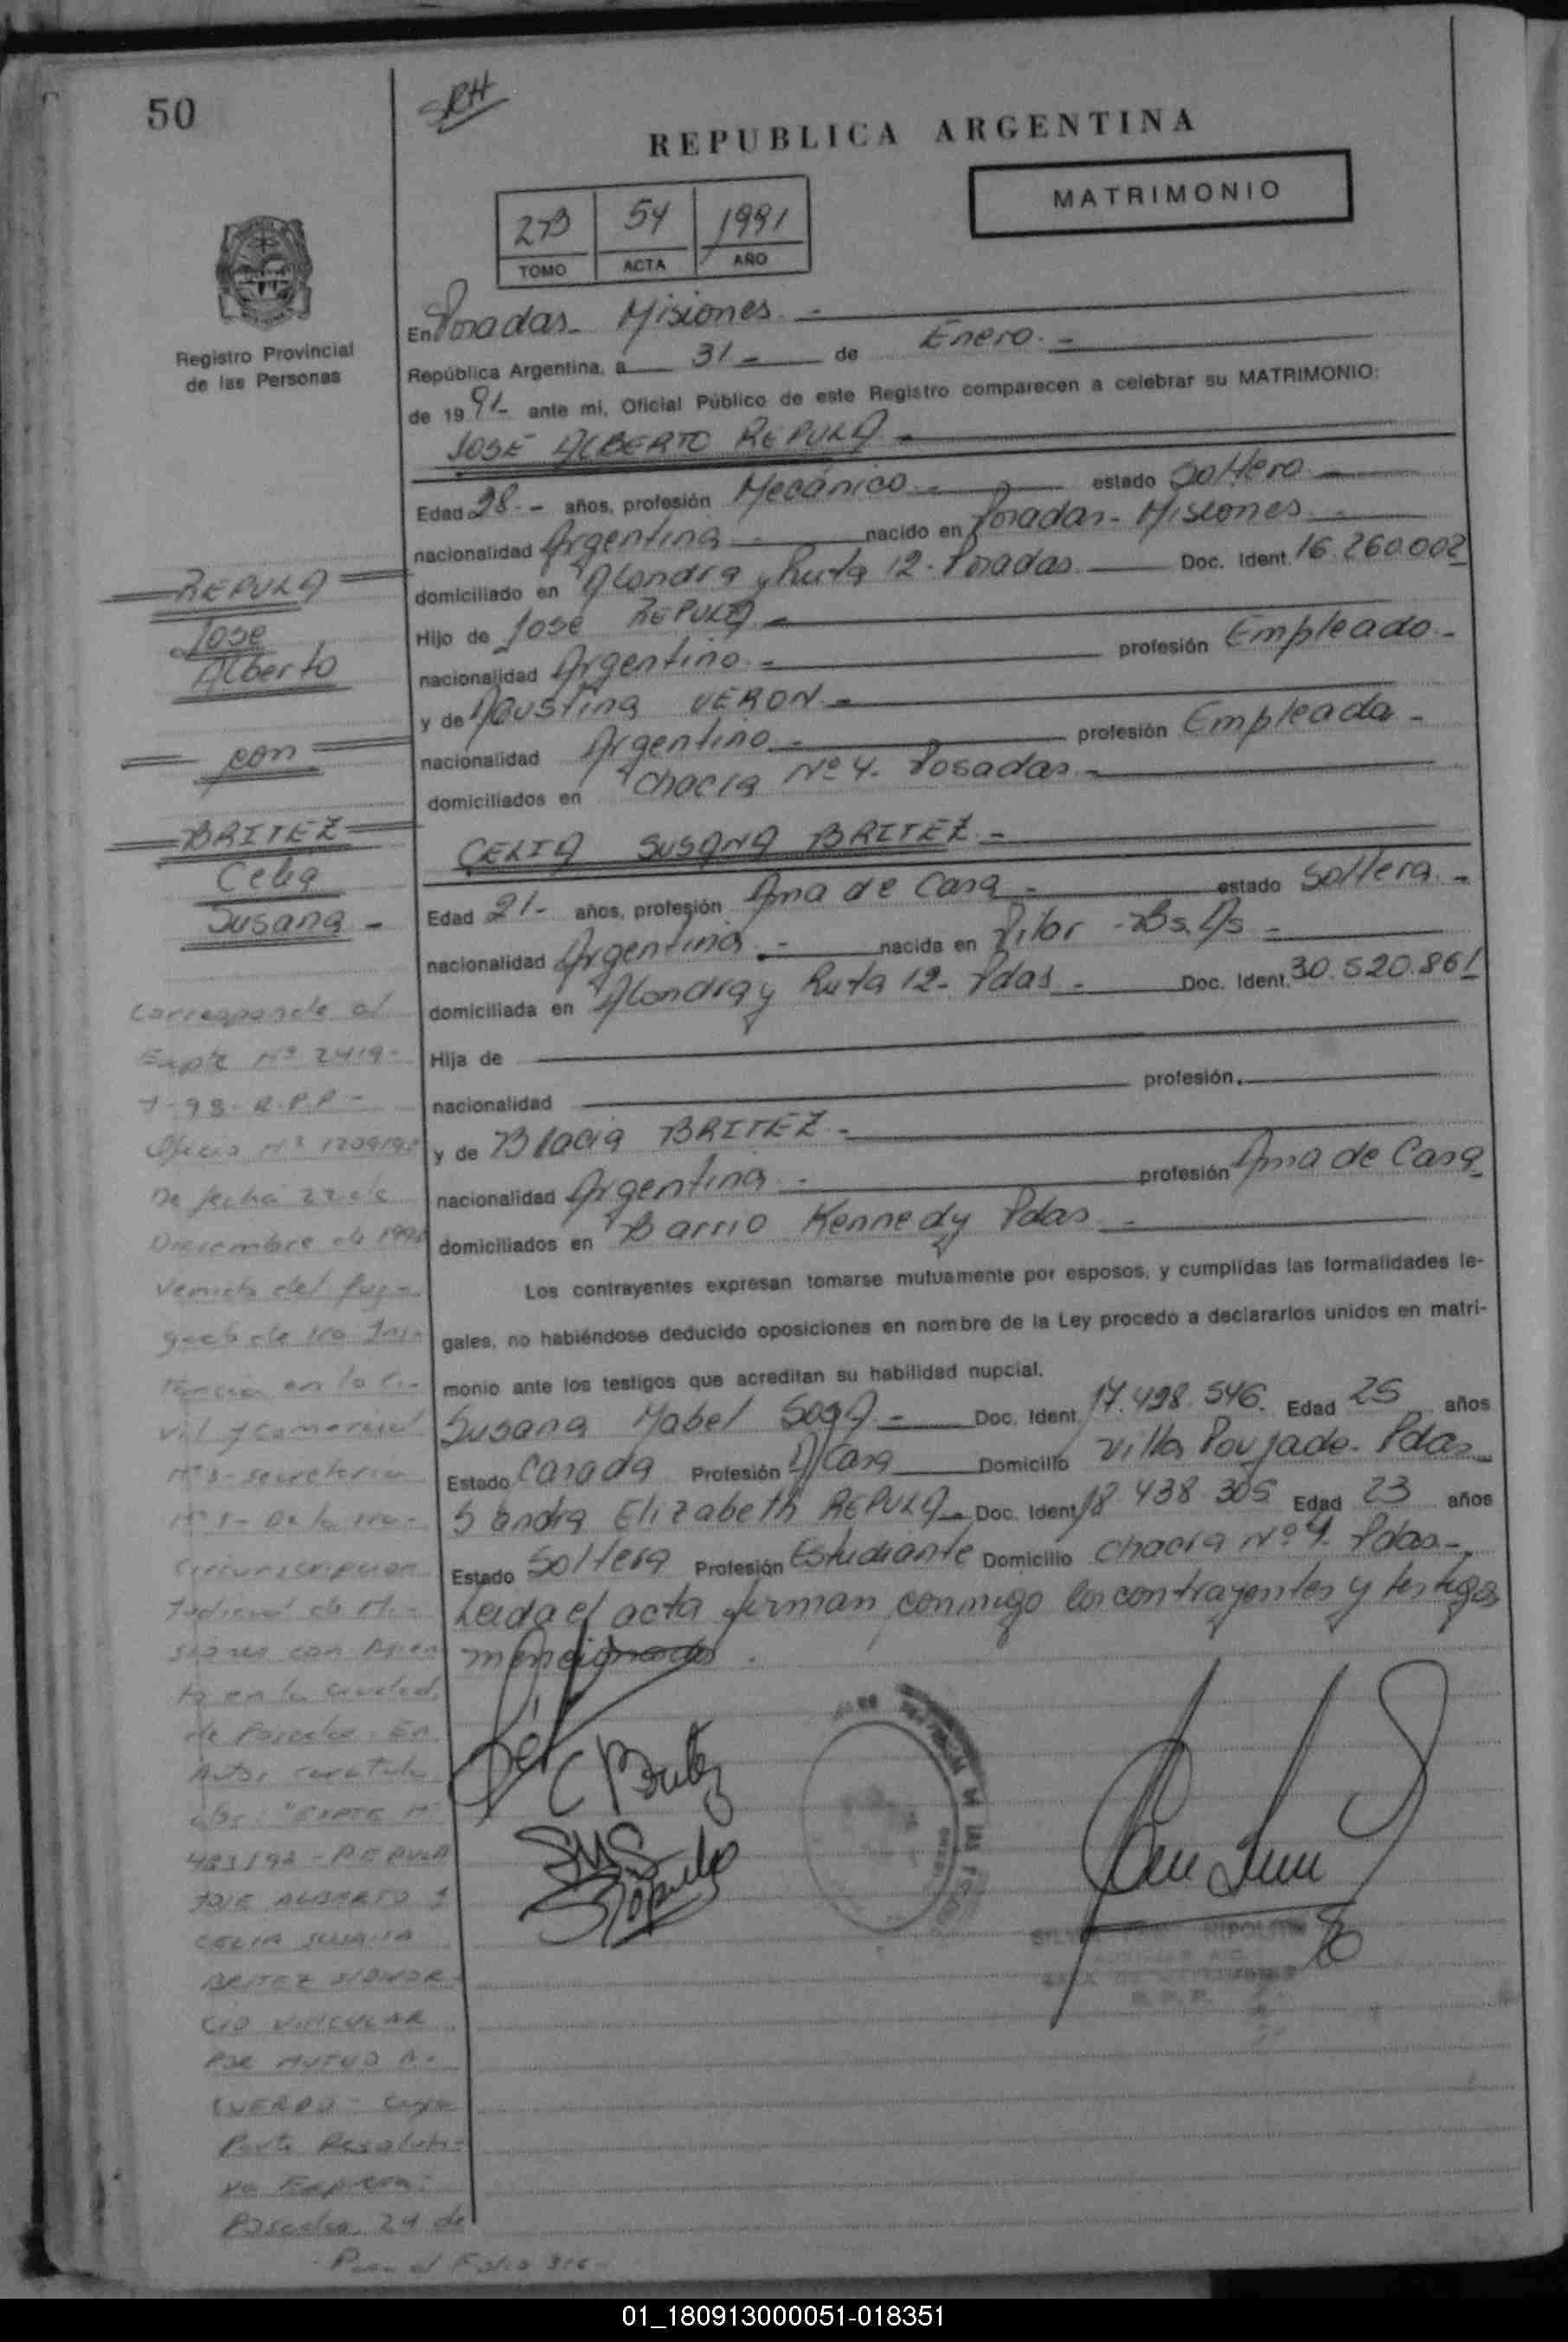 50
SRH
REPUBLICA ARGENTINA
MATRIMONIO
273 54 1991
TOMO ACTA AÑO
Registro Provincial
de las Personas
En Posadas - Misiones.-
República Argentina, a 31- de Enero.-
de 1991- ante mi, Oficial Público de este Registro comparecen a celebrar su MATRIMONIO:
JOSE ALBERTO REPULA.-
Edad 28.- años, profesión Mecánico.- estado Soltero.-
nacionalidad Argentina.- nacido en Posadas - Misiones.-
domiciliado en Alondra y Ruta 12 - Posadas Doc. Ident. 16.260.002
Hijo de Jose REPULA.-
nacionalidad Argentino.- profesión Empleado.-
y de Agustina VERON.-
nacionalidad Argentino.- profesión Empleada.-
domiciliados en Chacra Nº 4. Posadas.-
CELIA SUSANA BRITEZ.-
Edad 21- años, profesión Ama de Casa.- estado Soltera.-
nacionalidad Argentina.- nacida en Pilar - Bs. As.-
domiciliada en Alondra y Ruta 12 - Pdas.- Doc. Ident. 30.520.861
Hija de
nacionalidad profesión
y de Blacia BRITEZ.-
nacionalidad Argentina.- profesión Ama de Casa
domiciliados en Barrio Kennedy Pdas.-
Los contrayentes expresan tomarse mutuamente por esposos, y cumplidas las formalidades le-
gales, no habiéndose deducido oposiciones en nombre de la Ley procedo a declararlos unidos en matri-
monio ante los testigos que acreditan su habilidad nupcial.
Susana Mabel SOSA - Doc. Ident. 17.498.546. Edad 25 años
Estado Casada Profesión A/Casa Domicilio Villa Poujade - Pdas
Sandra Elizabeth REPULA - Doc. Ident. 18.438.305 Edad 23 años
Estado Soltera Profesión Estudiante Domicilio Chacra Nº 4. Pdas.-
Leida el acta firman conmigo los contrayentes y testigos
mencionados.
C Britez
REPULA
Jose
Alberto
con
BRITEZ
Celia
Susana -
Corresponde al
Expte Nº 2419-
De fecha 22 de
Diciembre de
venido del Juz-
gado de 1ra Ins-
tancia en lo Ci-
vil y Comercial
Nº 3 - Secretaria
Nº 1 - De la 1ra -
Circunscripcion
Judicial de Mi-
siones con Asien
to en la ciudad
de Posadas. En
Autos caratula
dos: "EXPTE Nº
REPULA
JOSE ALBERTO Y
CELIA SUSANA
BRITEZ S/DIVOR-
CIO VINCULAR
POR MUTUO A-
CUERDO - Cuya
Parte Resoluti-
va Expresa:
Posadas, 24 de
01_180913000051-018351